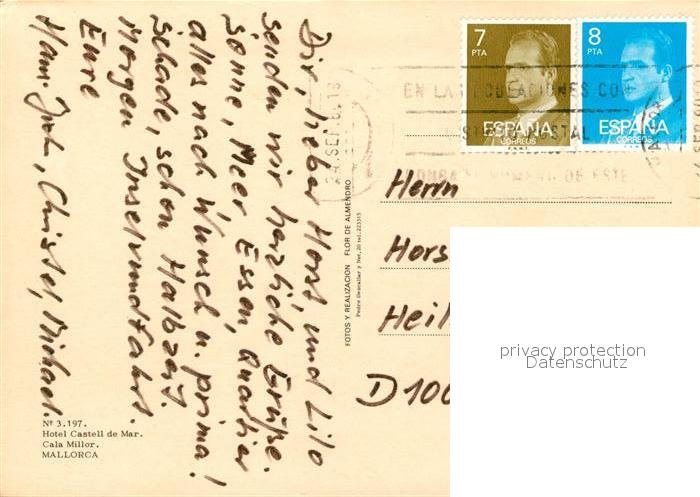 Dir, lieber Horst, und Lilo
senden wir herzliche Grüße.
Sonne, Meer, Essen, Quartier
alles nach Wunsch u. prima!
Schade, schon Halbzeit.
Morgen Inselrundfahrt.
Eure
Christel, Michael.
Nº 3.197.
Hotel Castell de Mar.
Cala Millor.
MALLORCA
FOTOS Y REALIZACION FLOR DE ALMENDRO
7
PTA
ESPAÑA
CORREOS
8
PTA
ESPAÑA
CORREOS
EN LAS POBLACIONES CON
DISTRITO POSTAL
PONGA EL NUMERO DE ESTE
Herrn
Hors
Heil
D 100
privacy protection
Datenschutz